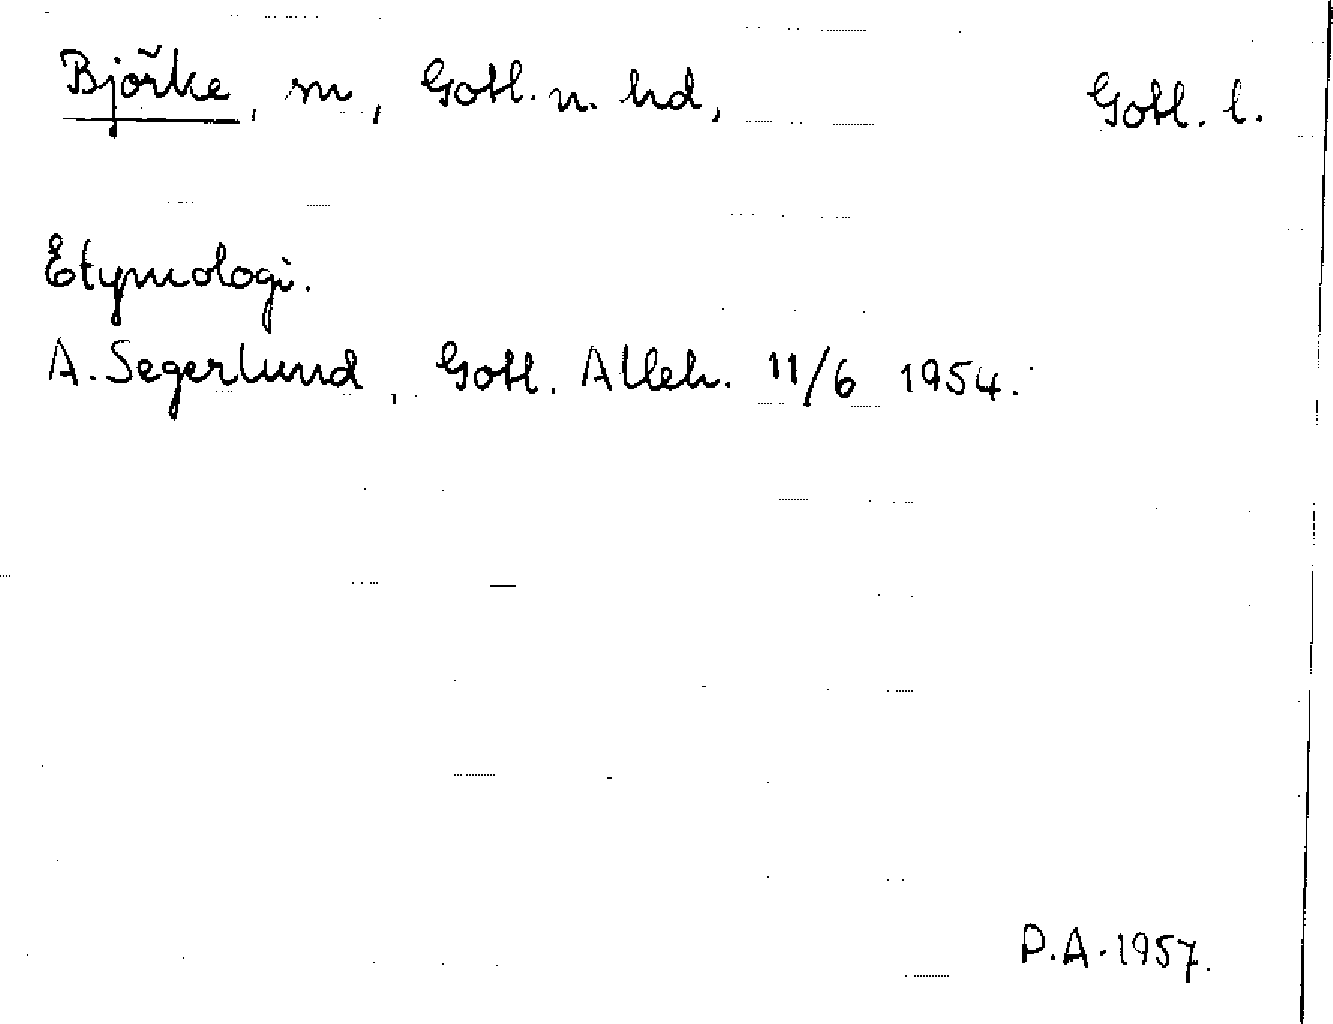 Björke, sn, Gotl. n. hd, Gotl. l.
Etymologi.
A. Segerlund, Gotl. Alleh. 11/6 1954.
P.A. 1957.